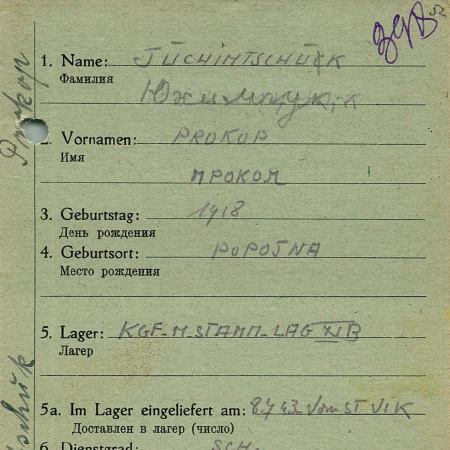 52
1. Name: JÜCHIMTSCHUK
Фамилия
Юхимчук
2. Vornamen: PROKOP
Имя
ПРОКОП
3. Geburtstag: 1918
День рождения
4. Geburtsort:
Место рождения
5. Lager: KGF-M-STAMM-LAG XI B
Лагерь
5a. Im Lager eingeliefert am: 8.7.43 vom ST VI K
Доставлен в лагерь (число)
6. Dienstgrad: SCH.
Prokop
schuk